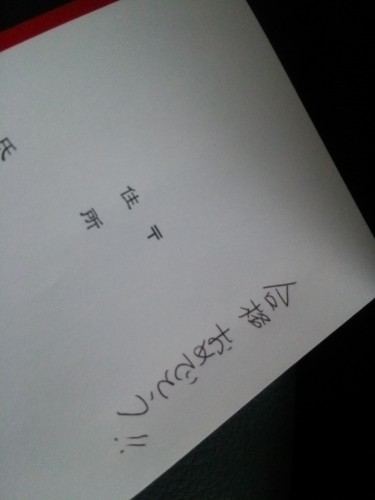 合格おめでとう!!
〒
住所
氏